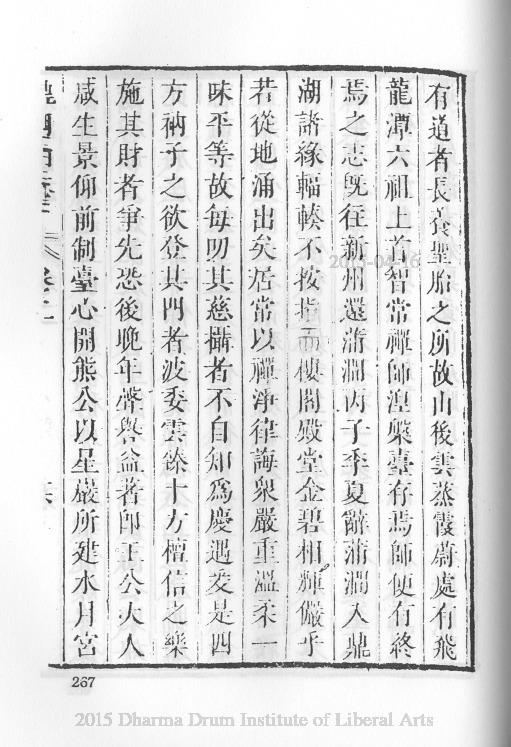 有道者長養聖胎之所故山後雲蒸霞蔚處有飛
龍潭六祖上首智常禪師涅槃臺存焉師便有終
焉之志旣往新州還蒲澗丙子季夏辭蒲澗入鼎
湖諸緣輻輳不按指而樓閣殿堂金碧相輝儼乎
若從地涌出矣居常以禪淨律誨衆嚴重溫柔一
味平等故每叨其慈攝者不自知爲慶遇爰是四
方衲子之欲登其門者波委雲十方檀信之樂
施其財者爭先恐後晚年聲譽益著卽王公大人
咸生景仰前制臺心開熊公以星巖所建水月宮
267
2015-04-16
2015 Dharma Drum Institute of Liberal Arts